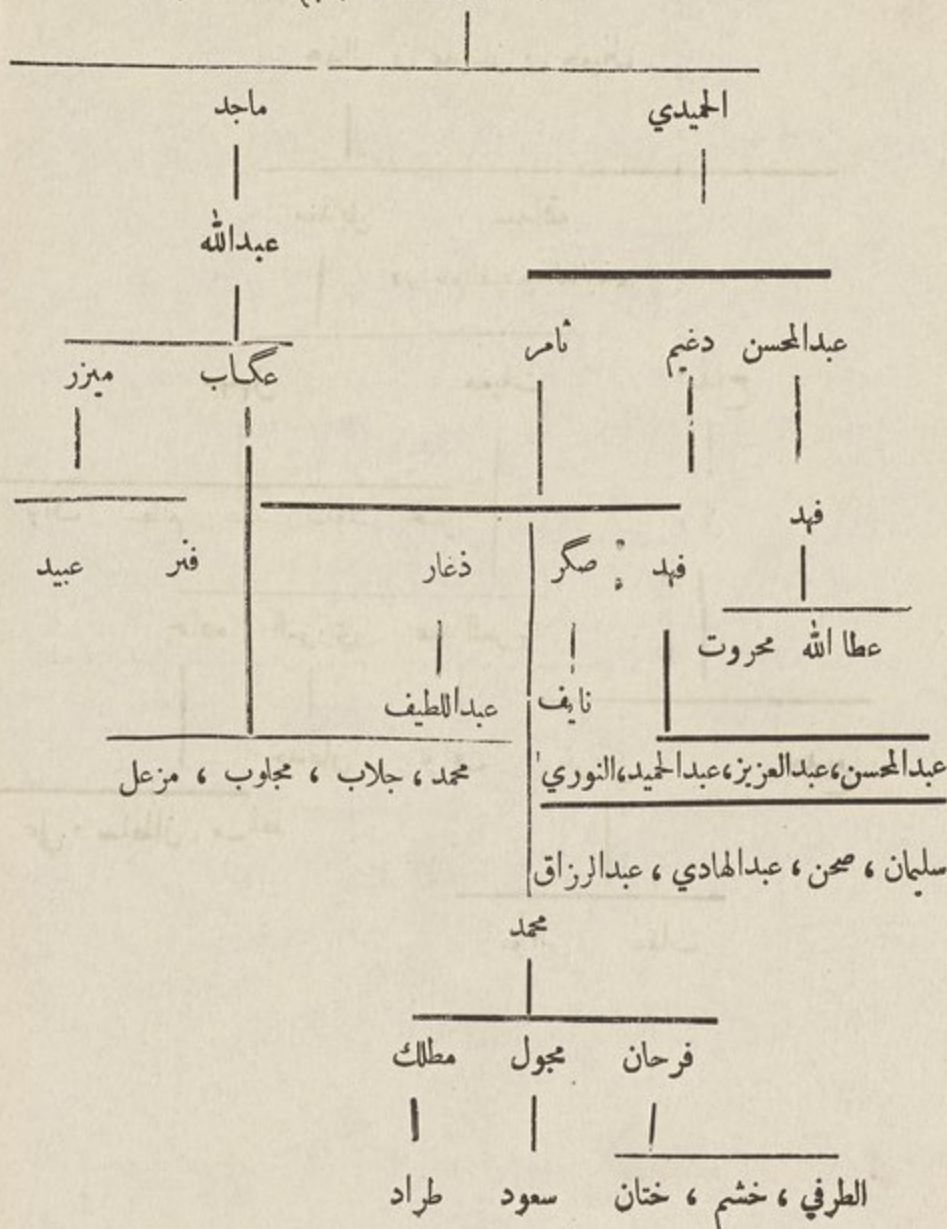 الحميدي ماجد
عبدالله
عبدالمحسن دغيم ثامر
عگاب ميزر
فهد
فهد صگر ذعار فنر عبيد
عطا الله محروت
نايف عبداللطيف
عبدالمحسن، عبدالعزيز، عبدالحميد، النوري
محمد ، جلاب ، مجلوب ، مزعل
سليمان ، صحن ، عبدالهادي ، عبدالرزاق
محمد
فرحان مجول مطلك
الطرفي ، خشم ، ختان سعود طراد